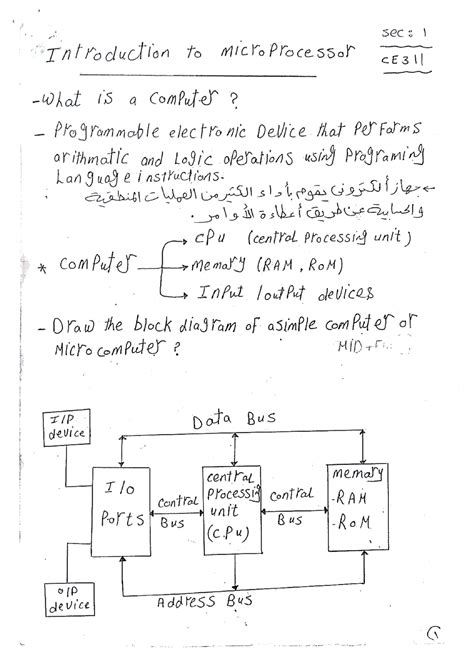 sec: 1
Introduction to microprocessor
CE311
-What is a computer ?
- Programmable electronic Device that Performs
arithmatic and Logic operations using Programing
Language instructions.
← جهاز ألكتروني يقوم بأداء الكثير من العمليات المنطقية
والحسابية عن طريق أعطاءة الأوامر.
CPU (central Processing unit)
* computer
memory (RAM, ROM)
Input / output devices
- Draw the block diagram of a simple computer or
Micro computer ?
MID +
I/P
device
Data Bus
I/o
Ports
control
Bus
central
Processing
unit
(C.P.u)
control
Bus
memory
-RAM
-ROM
o/P
device
Address Bus